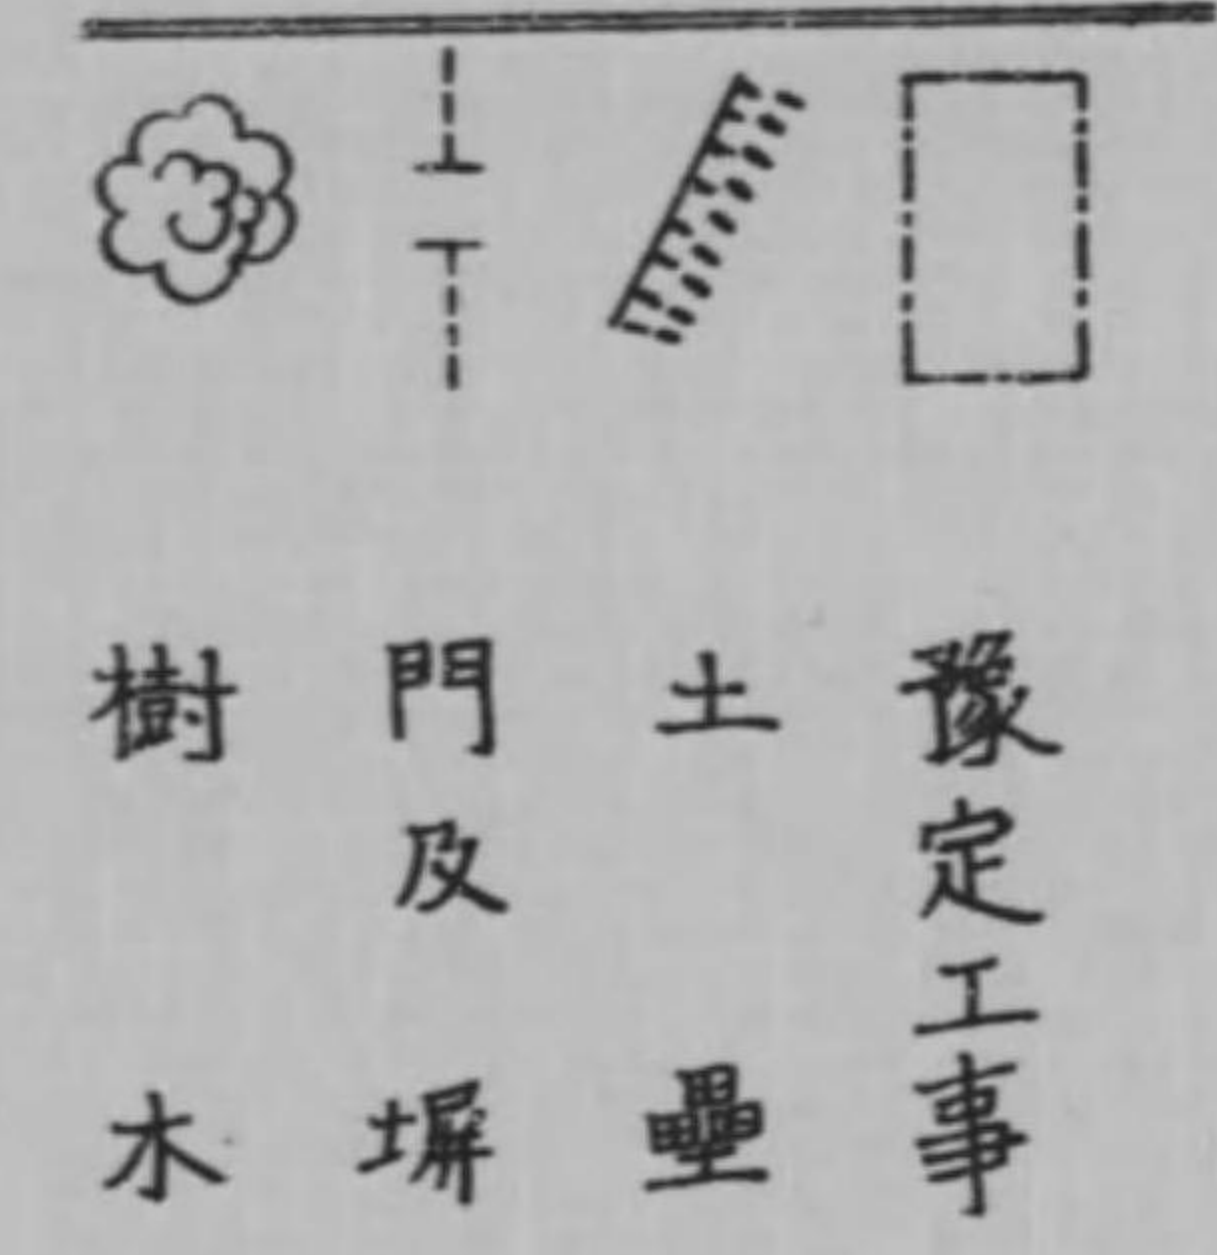 豫定工事
土壘
門及塀
樹木